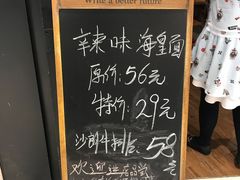 Write a better future
辛辣味海皇面
原价:56元
特价:29元
沙朗牛扒意:58元
欢迎进店品尝